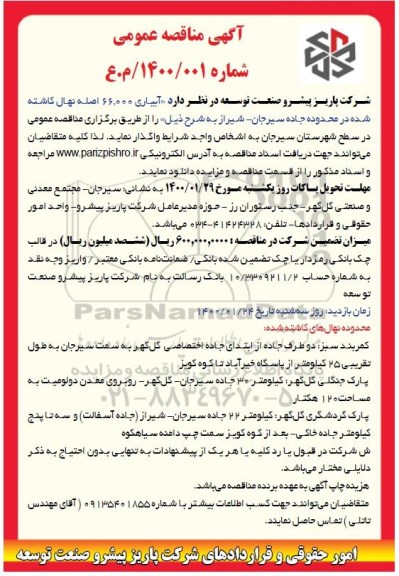 آگهی مناقصه عمومی
شماره ۱۴۰۰/۰۰۱/م.ع
شرکت پاریز پیشرو صنعت توسعه در نظر دارد «آبیاری ۶۶,۰۰۰ اصله نهال کاشته
شده در محدوده جاده سیرجان- شیراز به شرح ذیل» را از طریق برگزاری مناقصه عمومی
در سطح شهرستان سیرجان به اشخاص واجد شرایط واگذار نماید. لذا کلیه متقاضیان
می‌توانند جهت دریافت اسناد مناقصه به آدرس الکترونیکی www.parizpishro.ir مراجعه
و اسناد مذکور را از قسمت مناقصه و مزایده دانلود نمایند.
مهلت تحویل پاکات روز یکشنبه مورخ ۱۴۰۰/۰۱/۲۹ به نشانی: سیرجان- مجتمع معدنی
و صنعتی گل‌گهر- جنب رستوران رز - حوزه مدیرعامل شرکت پاریز پیشرو- واحد امور
حقوقی و قراردادها- تلفن: ۴۱۴۲۴۳۲۸-۰۳۴ می‌باشد.
میزان تضمین شرکت در مناقصه: ۶۰۰,۰۰۰,۰۰۰ ریال (ششصد میلیون ریال) در قالب
چک بانکی رمزدار یا چک تضمین شده بانکی/ ضمانت‌نامه بانکی معتبر / واریز وجه نقد
به شماره حساب ۱۰/۳۳۰۹۲۱۱/۲ بانک رسالت به نام شرکت پاریز پیشرو صنعت
توسعه
زمان بازدید: روز سه‌شنبه تاریخ ۱۴۰۰/۰۱/۲۴
محدوده نهال‌های کاشته شده:
کمربند سبز: دو طرف جاده از ابتدای جاده اختصاصی گل‌گهر به سمت سیرجان به طول
تقریبی ۲۵ کیلومتر از پاسگاه خیرآباد تا کوه کویز
پارک جنگلی گل‌گهر: کیلومتر ۳۰ جاده سیرجان- گل‌گهر- روبروی معدن دولومیت به
مساحت ۱۲۰ هکتار
پارک گردشگری گل‌گهر: کیلومتر ۲۲ جاده سیرجان- شیراز (جاده آسفالت) و سه تا پنج
کیلومتر جاده خاکی- بعد از کوه کویز سمت چپ دامنه سیاهکوه
ش شرکت در قبول یا رد کلیه یا هر یک از پیشنهادات به تنهایی بدون احتیاج به ذکر
دلایلی مختار می‌باشد.
هزینه چاپ آگهی به عهده برنده مناقصه می‌باشد.
متقاضیان می‌توانند جهت کسب اطلاعات بیشتر با شماره ۰۹۱۳۵۴۰۱۸۵۵ (آقای مهندس
تاتلی) تماس حاصل نمایند.
امور حقوقی و قراردادهای شرکت پاریز پیشرو صنعت توسعه
ParsNamadData
۰۲۱-۸۸۳۴۹۶۷۰-۵